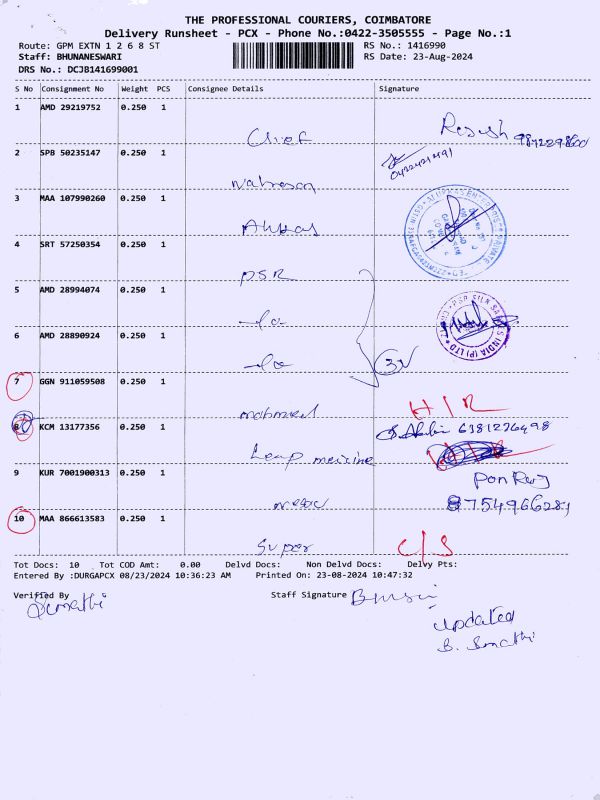 THE PROFESSIONAL COURIERS, COIMBATORE
Delivery Runsheet - PCX - Phone No.:0422-3505555 - Page No.:1
Route: GPM EXTN 1 2 6 8 ST RS No.: 1416990
Staff: BHUNANESWARI RS Date: 23-Aug-2024
DRS No.: DCJB141699001
S No Consignment No Weight PCS Consignee Details Signature
1 AMD 29219752 0.250 1
Chief
2 SPB 50235147 0.250 1
3 MAA 107990260 0.250 1
4 SRT 57250354 0.250 1
PSR
5 AMD 28994074 0.250 1
-do-
6 AMD 28890924 0.250 1
-do- 3
7 GGN 911059508 0.250 1
H/R
8 KCM 13177356 0.250 1
6381236498
9 KUR 7001900313 0.250 1
Pon Raj
8754966281
10 MAA 866613583 0.250 1
Super C/S
Tot Docs: 10 Tot COD Amt: 0.00 Delvd Docs: Non Delvd Docs: Delvy Pts:
Entered By :DURGAPCX 08/23/2024 10:36:23 AM Printed On: 23-08-2024 10:47:32
Verified By Staff Signature
Updated